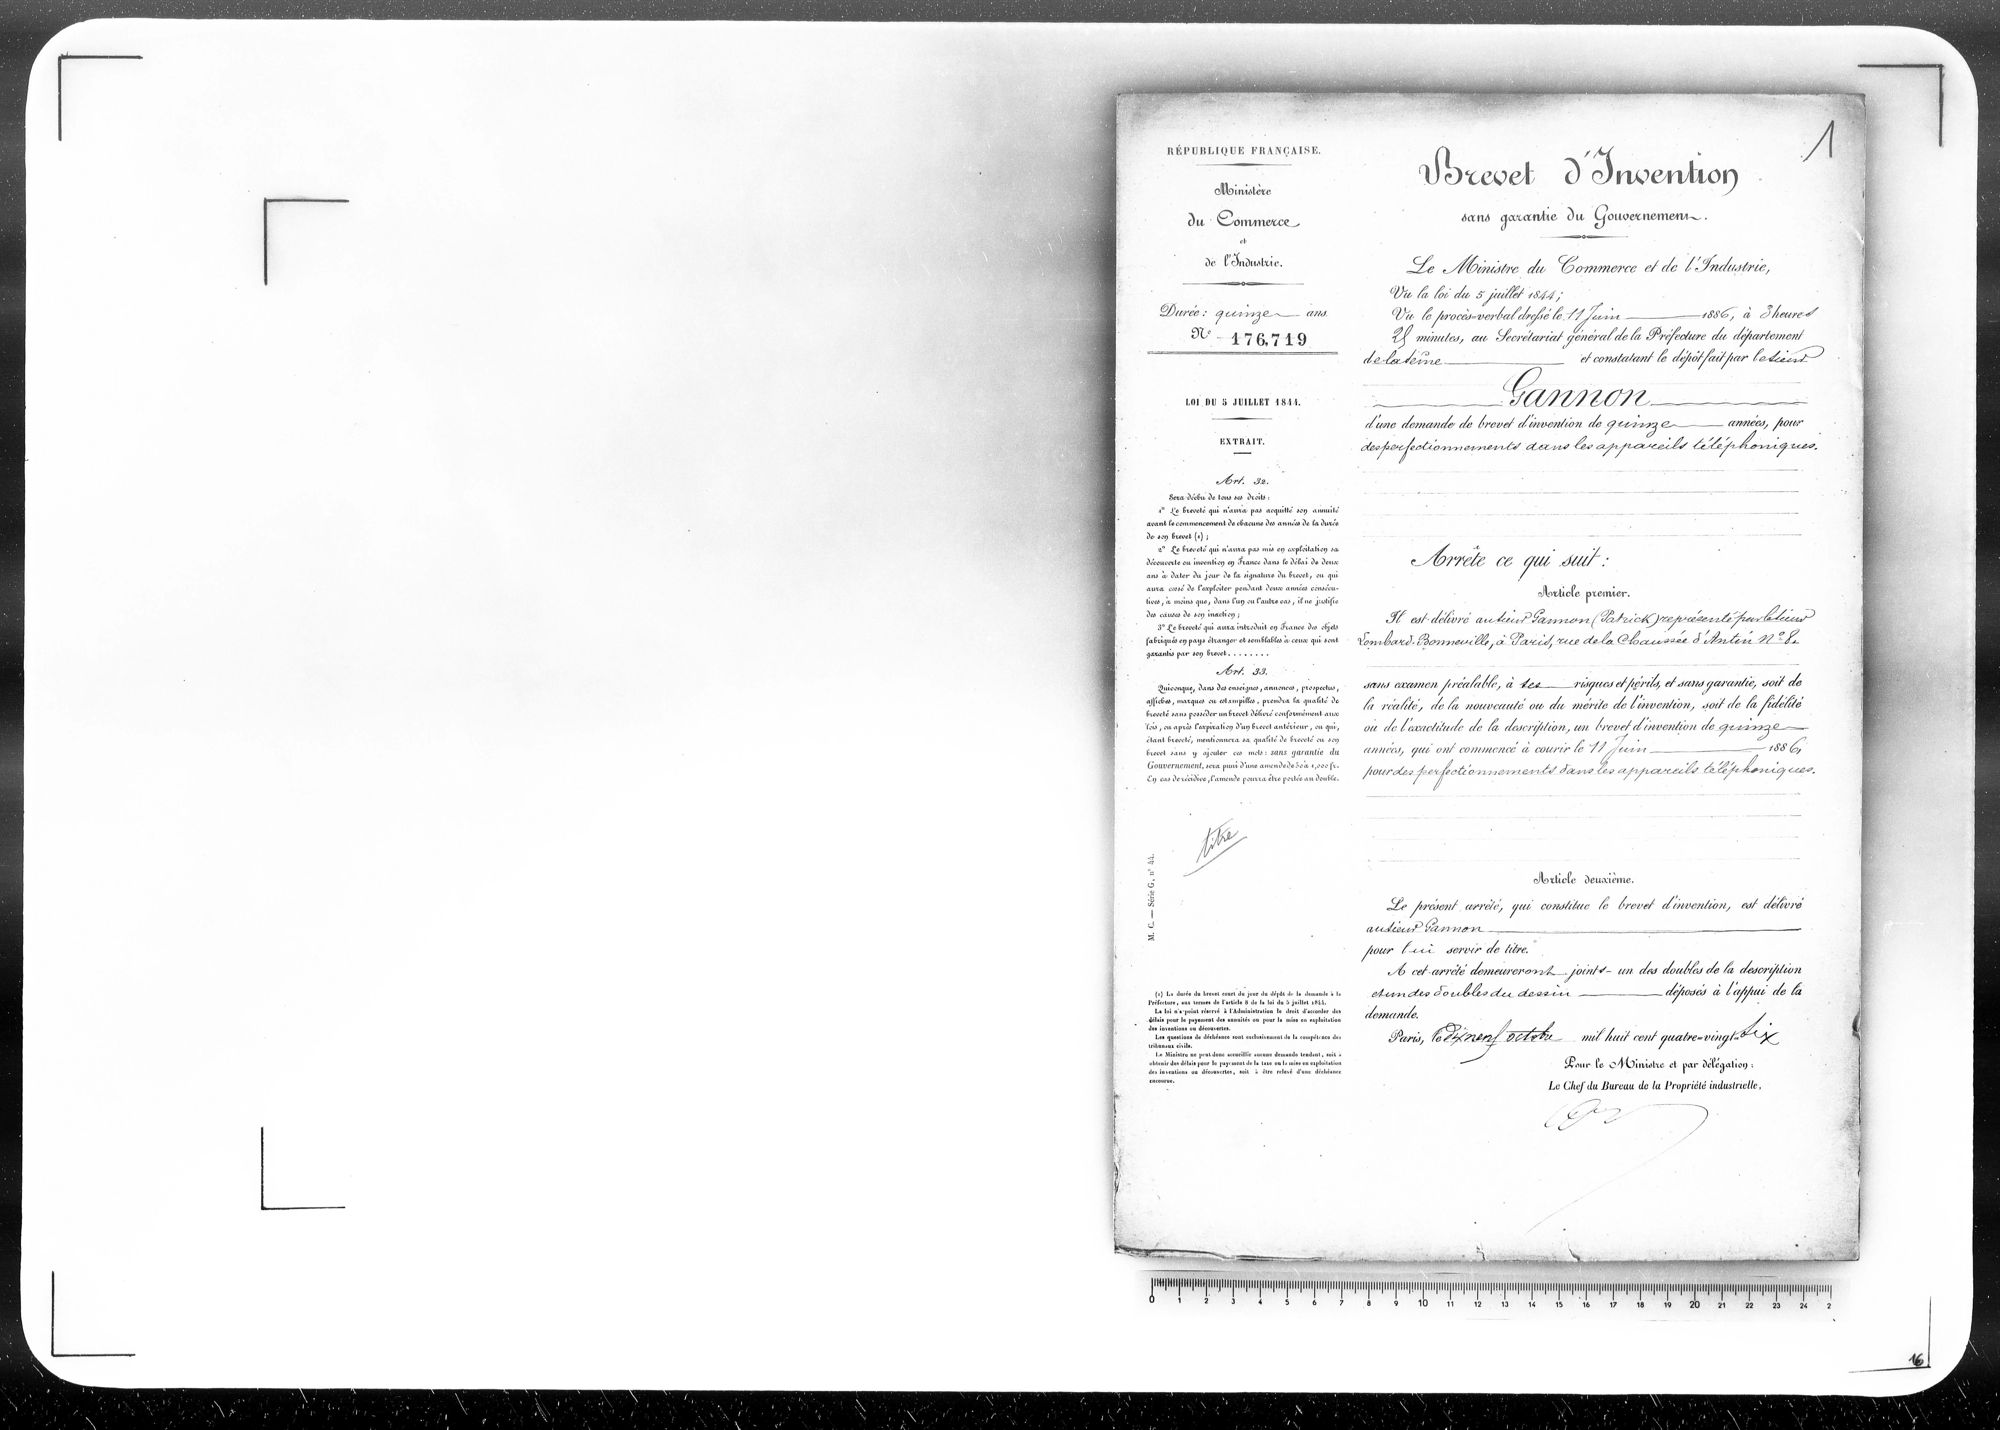 RÉPUBLIQUE FRANÇAISE.
Ministère
du Commerce
et
de l'Industrie.
Durée : quinze ans
N° 176,719
LOI DU 5 JUILLET 1844.
EXTRAIT.
Art. 32.
Sera déchu de tous ses droits :
1° Le breveté qui n'aura pas acquitté son annuité
avant le commencement de chacune des années de la durée
de son brevet (1) ;
2° Le breveté qui n'aura pas mis en exploitation sa
découverte ou invention en France dans le délai de deux
ans à dater du jour de la signature du brevet, ou qui
aura cessé de l'exploiter pendant deux années consécu-
tives, à moins que, dans l'un ou l'autre cas, il ne justifie
des causes de son inaction ;
3° Le breveté qui aura introduit en France des objets
fabriqués en pays étranger et semblables à ceux qui sont
garantis par son brevet........
Art. 33.
Quiconque, dans des enseignes, annonces, prospectus,
affiches, marques ou estampilles, prendra la qualité de
breveté sans posséder un brevet délivré conformément aux
lois, ou après l'expiration d'un brevet antérieur, ou qui,
étant breveté, mentionnera sa qualité de breveté ou son
brevet sans y ajouter ces mots : sans garantie du
Gouvernement, sera puni d'une amende de 50 à 1,000 fr.
En cas de récidive, l'amende pourra être portée au double.
titre
M. C. — Série G, n° 44.
(1) La durée du brevet court du jour du dépôt de la demande à la
Préfecture, aux termes de l'article 8 de la loi du 5 juillet 1844.
La loi n'a point réservé à l'Administration le droit d'accorder des
délais pour le payement des annuités ou pour la mise en exploitation
des inventions ou découvertes.
Les questions de déchéance sont exclusivement de la compétence des
tribunaux civils.
Le Ministre ne peut donc accueillir aucune demande tendant, soit à
obtenir des délais pour le payement de la taxe ou la mise en exploitation
des inventions ou découvertes, soit à être relevé d'une déchéance
encourue.
1
Brevet d'Invention
sans garantie du Gouvernement.
Le Ministre du Commerce et de l'Industrie,
Vu la loi du 5 juillet 1844 ;
Vu le procès-verbal dressé le 11 Juin 1886, à 3 heures
25 minutes, au Secrétariat général de la Préfecture du département
de la Seine et constatant le dépôt fait par le sieur
Gannon
d'une demande de brevet d'invention de quinze années, pour
des perfectionnements dans les appareils téléphoniques.
Arrête ce qui suit :
Article premier.
Il est délivré au sieur Gannon (Patrick) représenté par le sieur
Lombard-Bonneville, à Paris, rue de la Chaussée d'Antin N° 8.
sans examen préalable, à ses risques et périls, et sans garantie, soit de
la réalité, de la nouveauté ou du mérite de l'invention, soit de la fidélité
ou de l'exactitude de la description, un brevet d'invention de quinze
années, qui ont commencé à courir le 11 Juin 1886,
pour des perfectionnements dans les appareils téléphoniques.
Article deuxième.
Le présent arrêté, qui constitue le brevet d'invention, est délivré
au sieur Gannon
pour lui servir de titre.
A cet arrêté demeureront joints un des doubles de la description
et un des doubles du dessin déposés à l'appui de la
demande.
Paris, le dix neuf octobre mil huit cent quatre-vingt-six
Pour le Ministre et par délégation :
Le Chef du Bureau de la Propriété industrielle,
0 1 2 3 4 5 6 7 8 9 10 11 12 13 14 15 16 17 18 19 20 21 22 23 24 2
16